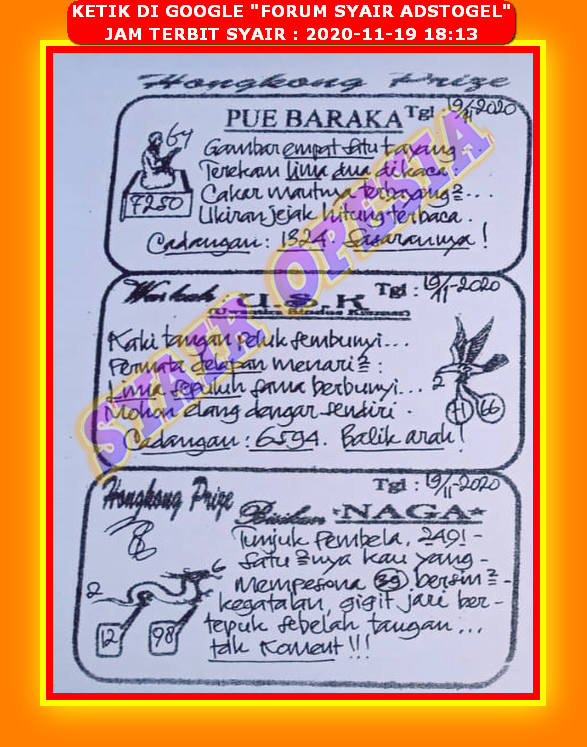 KETIK DI GOOGLE "FORUM SYAIR ADSTOGEL"
JAM TERBIT SYAIR : 2020-11-19 18:13
Hongkong Prize
PUE BARAKA Tgl : 19/11-2020
64
7250
Gambar empat satu tayang
Terekam lima dua dikaca.
Cakar mautnya terbayang2...
Ukiran jejak hitung terbaca.
Cadangan : 1324. Sasarannya !
U.S.K Tgl : 19/11-2020
Kaki tangan peluk sembunyi...
Permata delapan menari2 :
Lima sepuluh sama berbunyi...
Mohon elang dengar sendiri.
2
71 66
Cadangan : 6594. Balik arah !
Hongkong Prize
Tgl : 19/11-2020
Bisikan *NAGA*
Tunjuk Pembela, 249! -
Satu2nya kau yang -
Mempesona 39 bersin2 -
kegatalan, gigit jari ber -
tepuk sebelah tangan...
tdk Koment !!!
2
6
12 98
SYAIR OPESIA